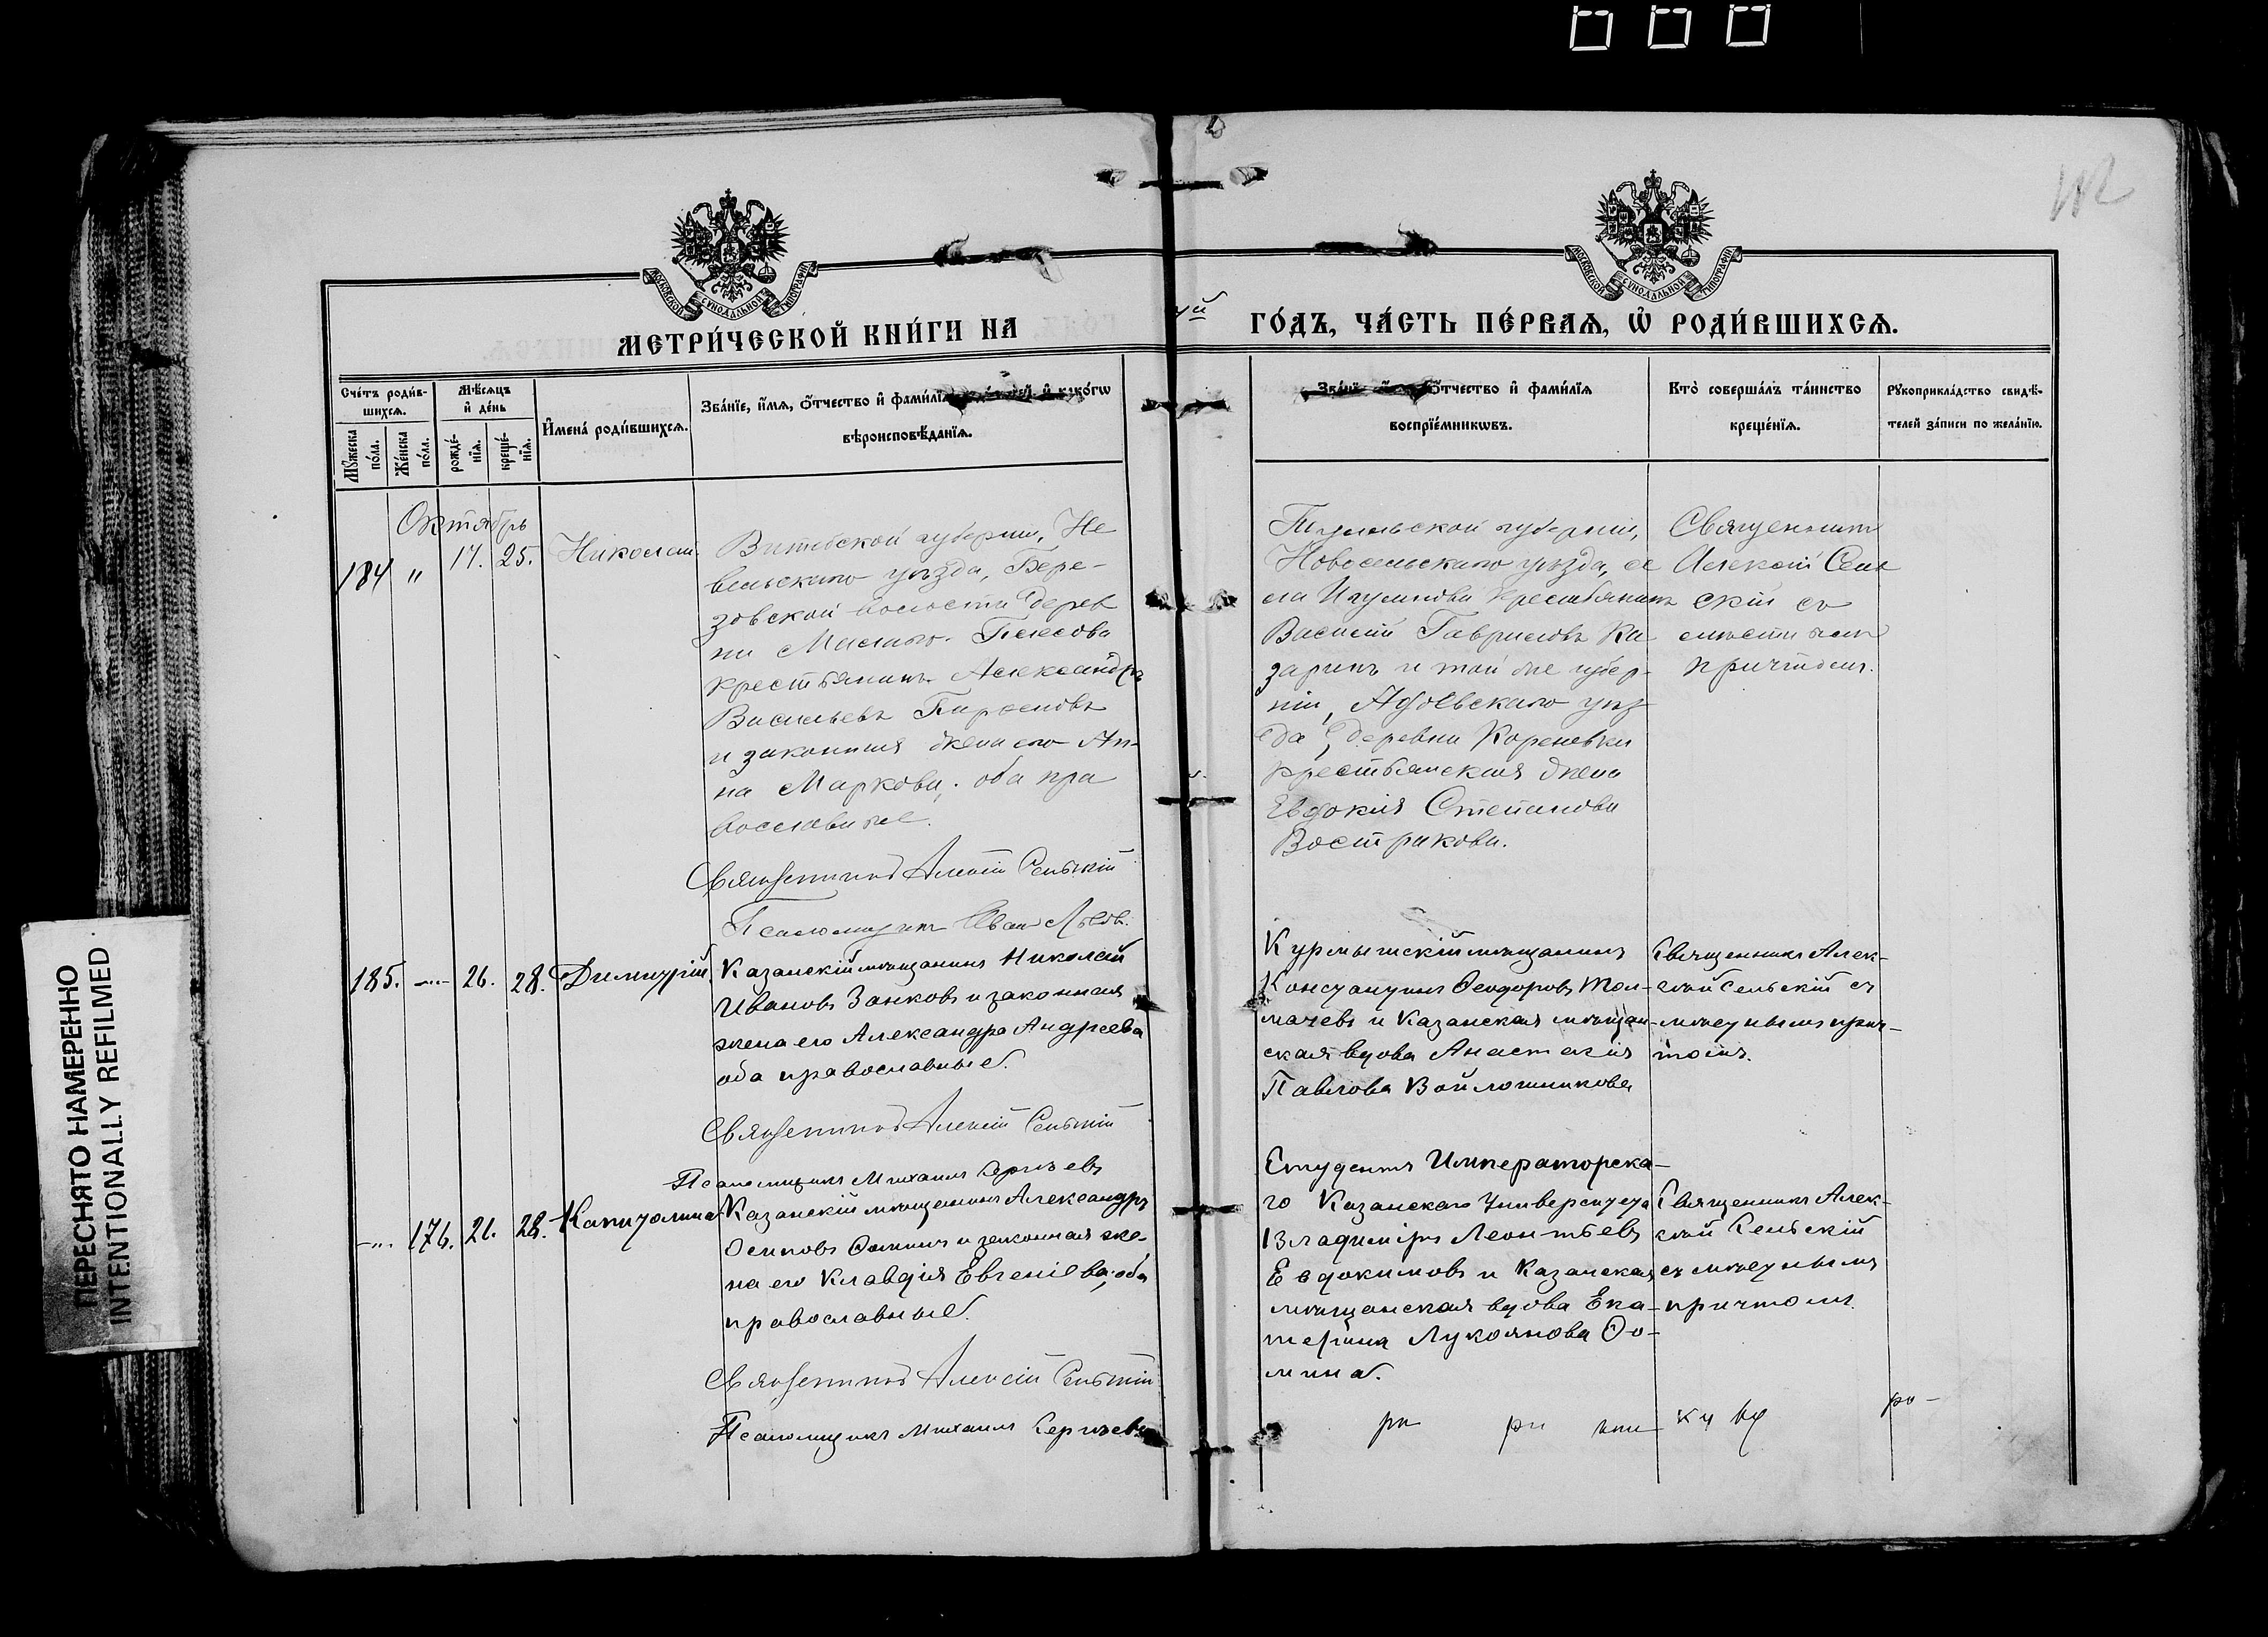 МЕТРИ́ЧЕСКОЙ КНИ́ГИ НА
ГО́ДЪ, ЧА́СТЬ ПЕ́РВАѦ, Ѡ҆ РОДИ́ВШИХСѦ.
МОСКОВСКОЙ СѴНОДАЛЬНОЙ ТИПОГРАФІИ
МОСКОВСКОЙ СѴНОДАЛЬНОЙ ТИПОГРАФІИ
Сче́тъ роди́в-
шихсѧ.
Мꙋ́жеска по́ла.
Же́нска по́ла.
Мѣ́сѧцъ
и҆ де́нь
рожде́-нїѧ.
креще́-нїѧ.
И҆мена̀ роди́вшихсѧ.
Зва́нїе, и҆́мѧ, ѻ҆́тчество и҆ фами́лїѧ и҆ како́гѡ
вѣроисповѣ́данїѧ.
ѻ҆́тчество и҆ фами́лїѧ
воспрїе́мникѡвъ.
Кто̀ соверша́лъ та́инство
креще́нїѧ.
Рꙋкоприкла́дство свидѣ́-
телей за́писи по жела́нїю.
Октябрь
184 " 17. 25. Николай
Витебской губерніи, Не
вельскаго уѣзда, Бере-
зовской волости дерев
ни
крестьянинъ Александръ
Васильевъ
и законная жена его Ан-
на Маркова; оба пра
вославные.
Священникъ Алексій Сельскій
Псаломщикъ Иван
Тульской губерніи,
Новосильскаго уѣзда, се
ла крестьянинъ
Василій Гавриловъ Ка
заринъ и той же губер-
ніи, уѣз
да, деревни Кореневки
крестьянская жена
Евдокія Степанова
Вострикова.
Священникъ
Алексій Сель
скій съ
мѣстным
причтомъ.
185. -"- 26. 28. Димитрій
Казанскій мѣщанинъ Николай
Ивановъ Занковъ и законная
жена его Александра Андреева
оба православные.
Священникъ Алексій Сельскій
Псаломщикъ Михаилъ Сергѣевъ
Курмышскій мѣщанинъ
Константинъ Ѳеодоровъ Тол-
мачевъ и Казанская мѣщан-
ская вдова Анастасія
Павлова Войлошникова
Священникъ Алек-
сій Сельскій съ
мѣстнымъ прич-
томъ.
-"- 176. 21. 28. Капитолина
Казанскій мѣщанинъ Александръ
Осиповъ Ѳоминъ и законная же-
на его Клавдія Евгеніева; оба
православные.
Священникъ Алексій Сельскій
Псаломщикъ Михаилъ Сергѣевъ
Студентъ Императорска-
го Казанскаго Университета
Владиміръ Леонтьевъ
Евдокимовъ и Казанская
мѣщанская вдова Ека-
терина Лукоянова Ѳо-
мина.
Священникъ Алек-
сій Сельскій
съ мѣстнымъ
причтомъ.
ПЕРЕСНЯТО НАМЕРЕННО
INTENTIONALLY REFILMED